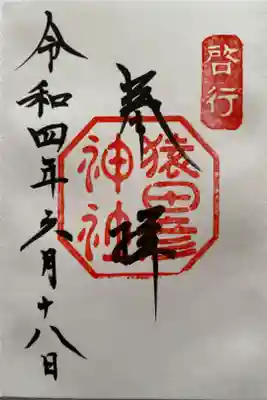 啓行
奉拝
猿田彦
神社
令和四年六月十八日